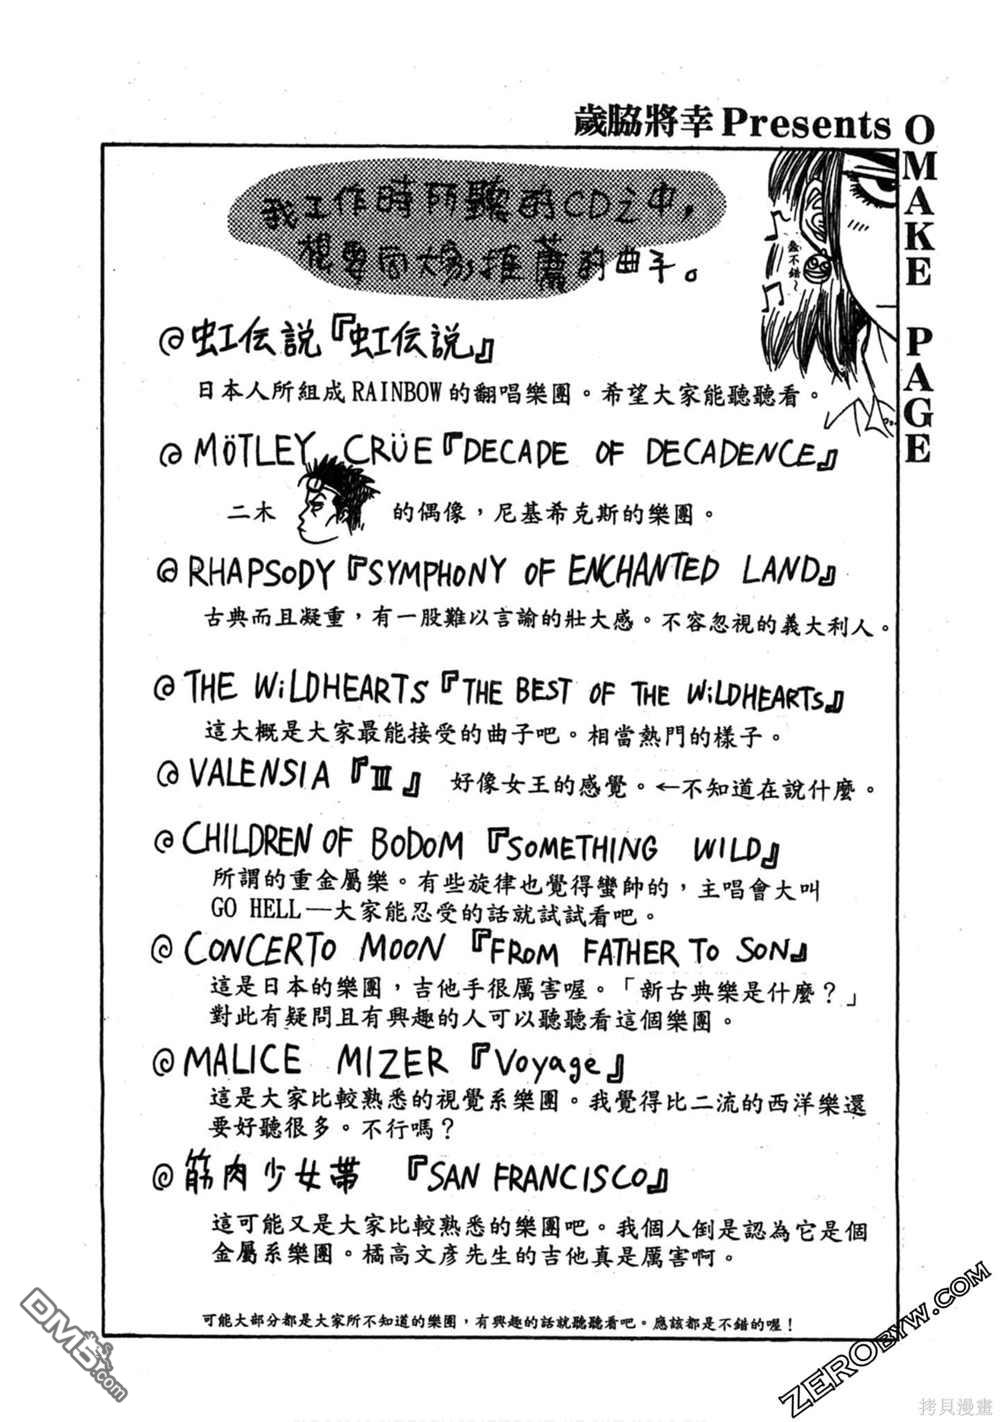 歲脇將幸Presents
OMAKE PAGE
我工作時所聽的CD之中，
想要向大家推薦的曲子。
蠻不錯~
@虹伝説『虹伝説』
日本人所組成RAINBOW的翻唱樂團。希望大家能聽聽看。
@MÖTLEY CRÜE『DECADE OF DECADENCE』
二木 的偶像，尼基希克斯的樂團。
@RHAPSODY『SYMPHONY OF ENCHANTED LAND』
古典而且凝重，有一股難以言諭的壯大感。不容忽視的義大利人。
@THE WiLDHEARTS『THE BEST OF THE WiLDHEARTS』
這大概是大家最能接受的曲子吧。相當熱門的樣子。
@VALENSIA『Ⅲ』 好像女王的感覺。←不知道在說什麼。
@CHILDREN OF BODOM『SOMETHING WILD』
所謂的重金屬樂。有些旋律也覺得蠻帥的，主唱會大叫
GO HELL—大家能忍受的話就試試看吧。
@CONCERTO MOON『FROM FATHER TO SON』
這是日本的樂團，吉他手很厲害喔。「新古典樂是什麼？」
對此有疑問且有興趣的人可以聽聽看這個樂團。
@MALICE MIZER『Voyage』
這是大家比較熟悉的視覺系樂團。我覺得比二流的西洋樂還
要好聽很多。不行嗎？
@筋肉少女帯『SAN FRANCISCO』
這可能又是大家比較熟悉的樂團吧。我個人倒是認為它是個
金屬系樂團。橘高文彥先生的吉他真是厲害啊。
可能大部分都是大家所不知道的樂團，有興趣的話就聽聽看吧。應該都是不錯的喔！
DM5.com
ZEROBYW.COM
拷貝漫畫